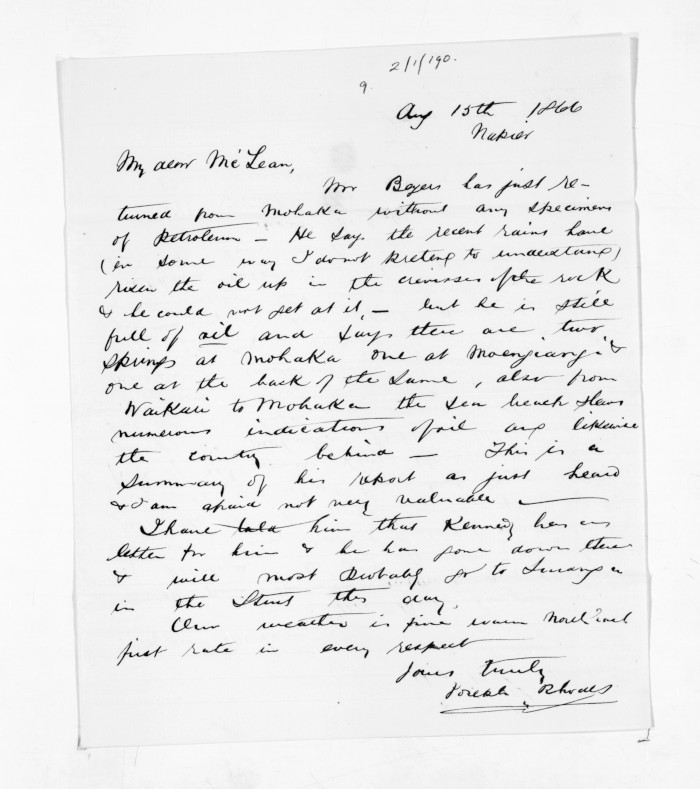 2/1/190.
9.
Aug 15th 1866
Napier
My dear McLean,
Mr Beyers has just re-
turned from Mohaka without any specimens
of Petroleum – He says the recent rains have
(in some way I do not pretend to understand)
risen the oil up in the crevisses of the rock
& he could not get at it, – but he is still
full of oil and says there are two
springs at Mohaka one at Moengiangi &
one at the back of the same, also from
Waikari to Mohaka the sea beach shews
numerous indications of oil and likewise
the country behind – This is a
summary of his report as just heard
& I am afraid not very valuable –
I have told him that Kennedy has a
letter for him & he has gone down there
& will most probably go to Turanga
in the Sturt this day.
Our weather is fine warm
first rate in every respect
Yours truly
Joseph Rhodes